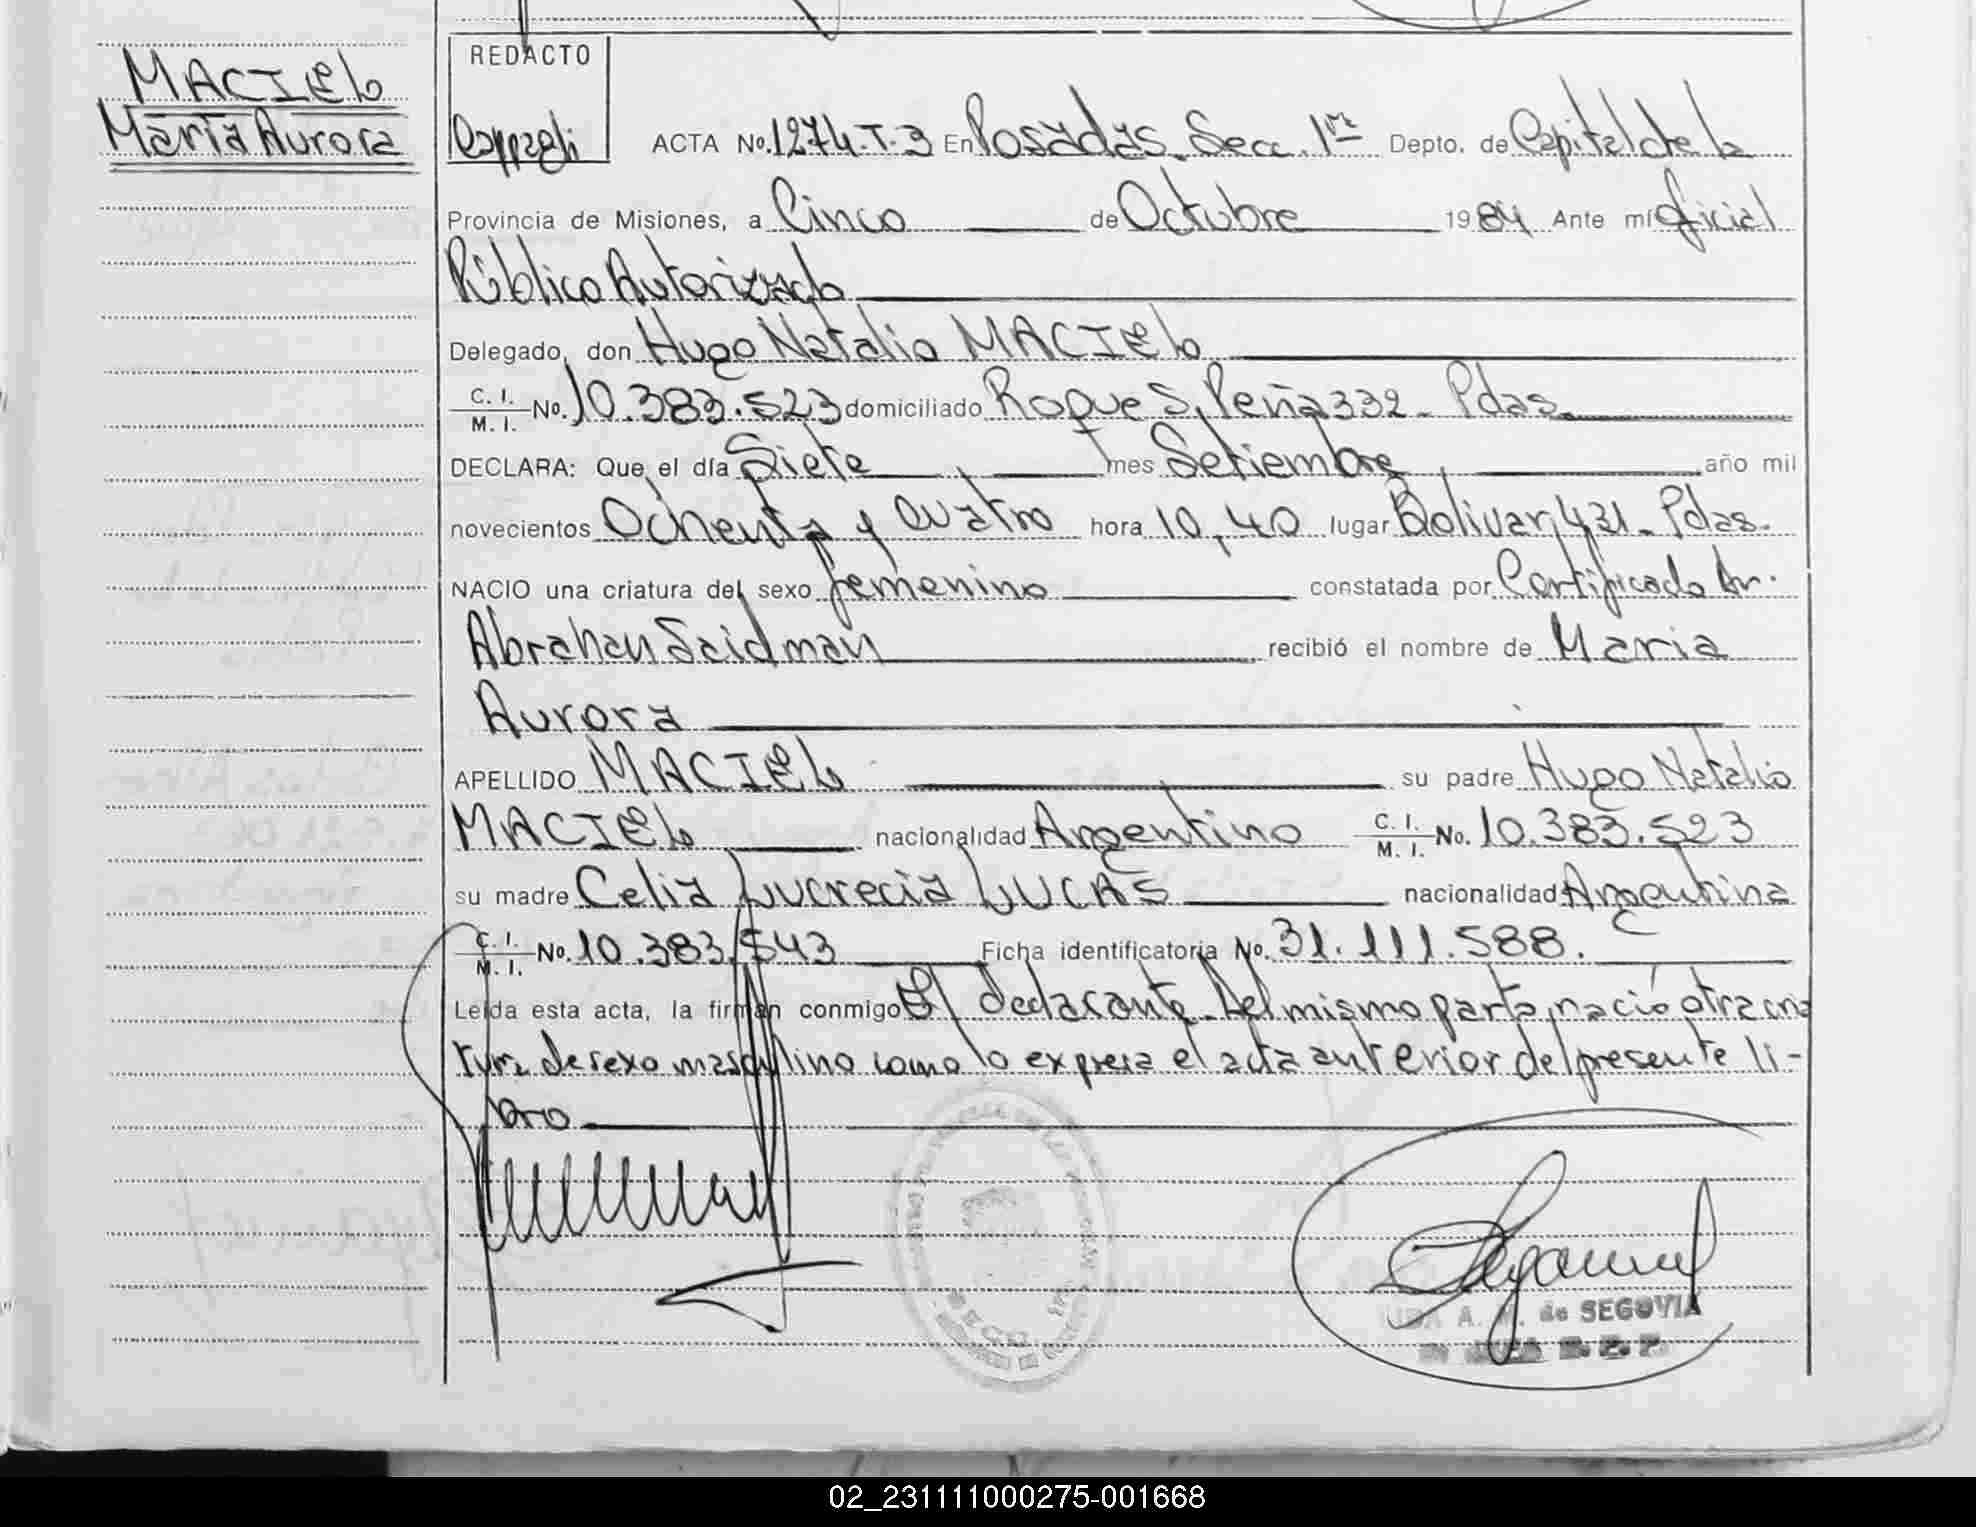 MACIEL
María Aurora
REDACTO
ACTA No. 1274.T.3 En Posadas. Secc. 1ra Depto. de Capital de la
Provincia de Misiones, a Cinco de Octubre 1984 Ante mí Oficial
Público Autorizado
Delegado, don Hugo Natalio MACIEL
C. I. M. I. No. 10.383.523 domiciliado Roque S. Peña 332 - Pdas.
DECLARA: Que el día Siete mes Setiembre año mil
novecientos Ochenta y Cuatro hora 10,40 lugar Bolivar 431 - Pdas.
NACIO una criatura del sexo femenino constatada por Certificado Dr.
Abrahan Saidman recibió el nombre de Maria
Aurora
APELLIDO MACIEL su padre Hugo Natalio
MACIEL nacionalidad Argentino C. I. M. I. No. 10.383.523
su madre Celia Lucrecia LUCAS nacionalidad Argentina
C. I. M. I. No. 10.383.543 Ficha identificatoria No. 31.111.588.
Leída esta acta, la firman conmigo El declarante. Del mismo parto, nació otra cria
tura de sexo masculino como lo expresa el acta anterior del presente li-
bro
A. M. de SEGOVIA
02_231111000275-001668